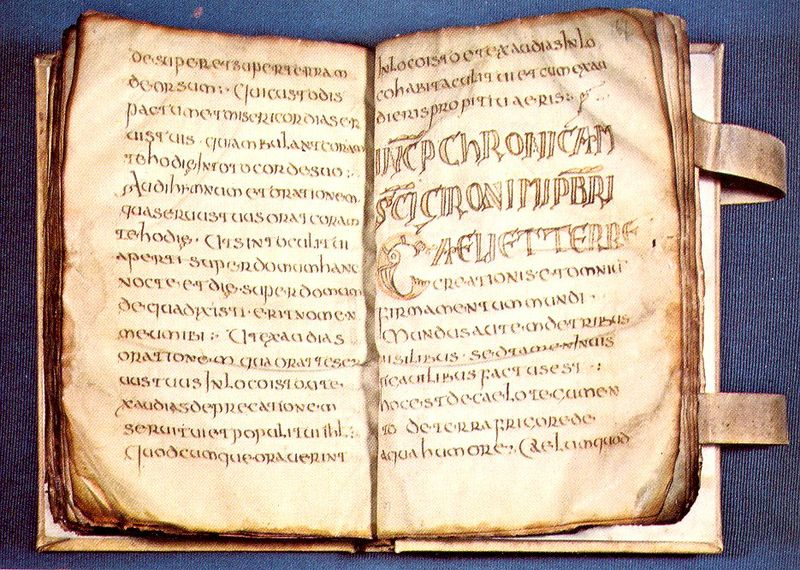 desuper et super terram
deorsum: Qui custodis
pactum et misericordias er
uis tuis · qui ambulant coram
te hodie In toto corde suo:
Audi hymnum et orationem
qua seruus tuus orat coram
te hodie · Ut sint oculi tui
aperti super domum hanc
nocte et die · super domum
de qua dixisti · erit nomen
meum ibi: Ut exaudias
orationem qua orat te ser
uus tuus In loco isto et e
xaudias deprecationem
serui tui et populi tui ihl:
Quodcumque orauerint
In loco isto et exaudias In lo
co habitaculi tui et cum exau
dieris propitiuaeris:
INCP CHRONICAM
SCI GIRONIMI PBRI
CAELI ET TERRE
CREATIONIS et omniu
firmamentum mundi ·
Mundus autem de tribus
uisilibus · sed tamen
factus est:
hoc est de caelo tegumen
to de terra frigore de
aqua humore: Caelum quod